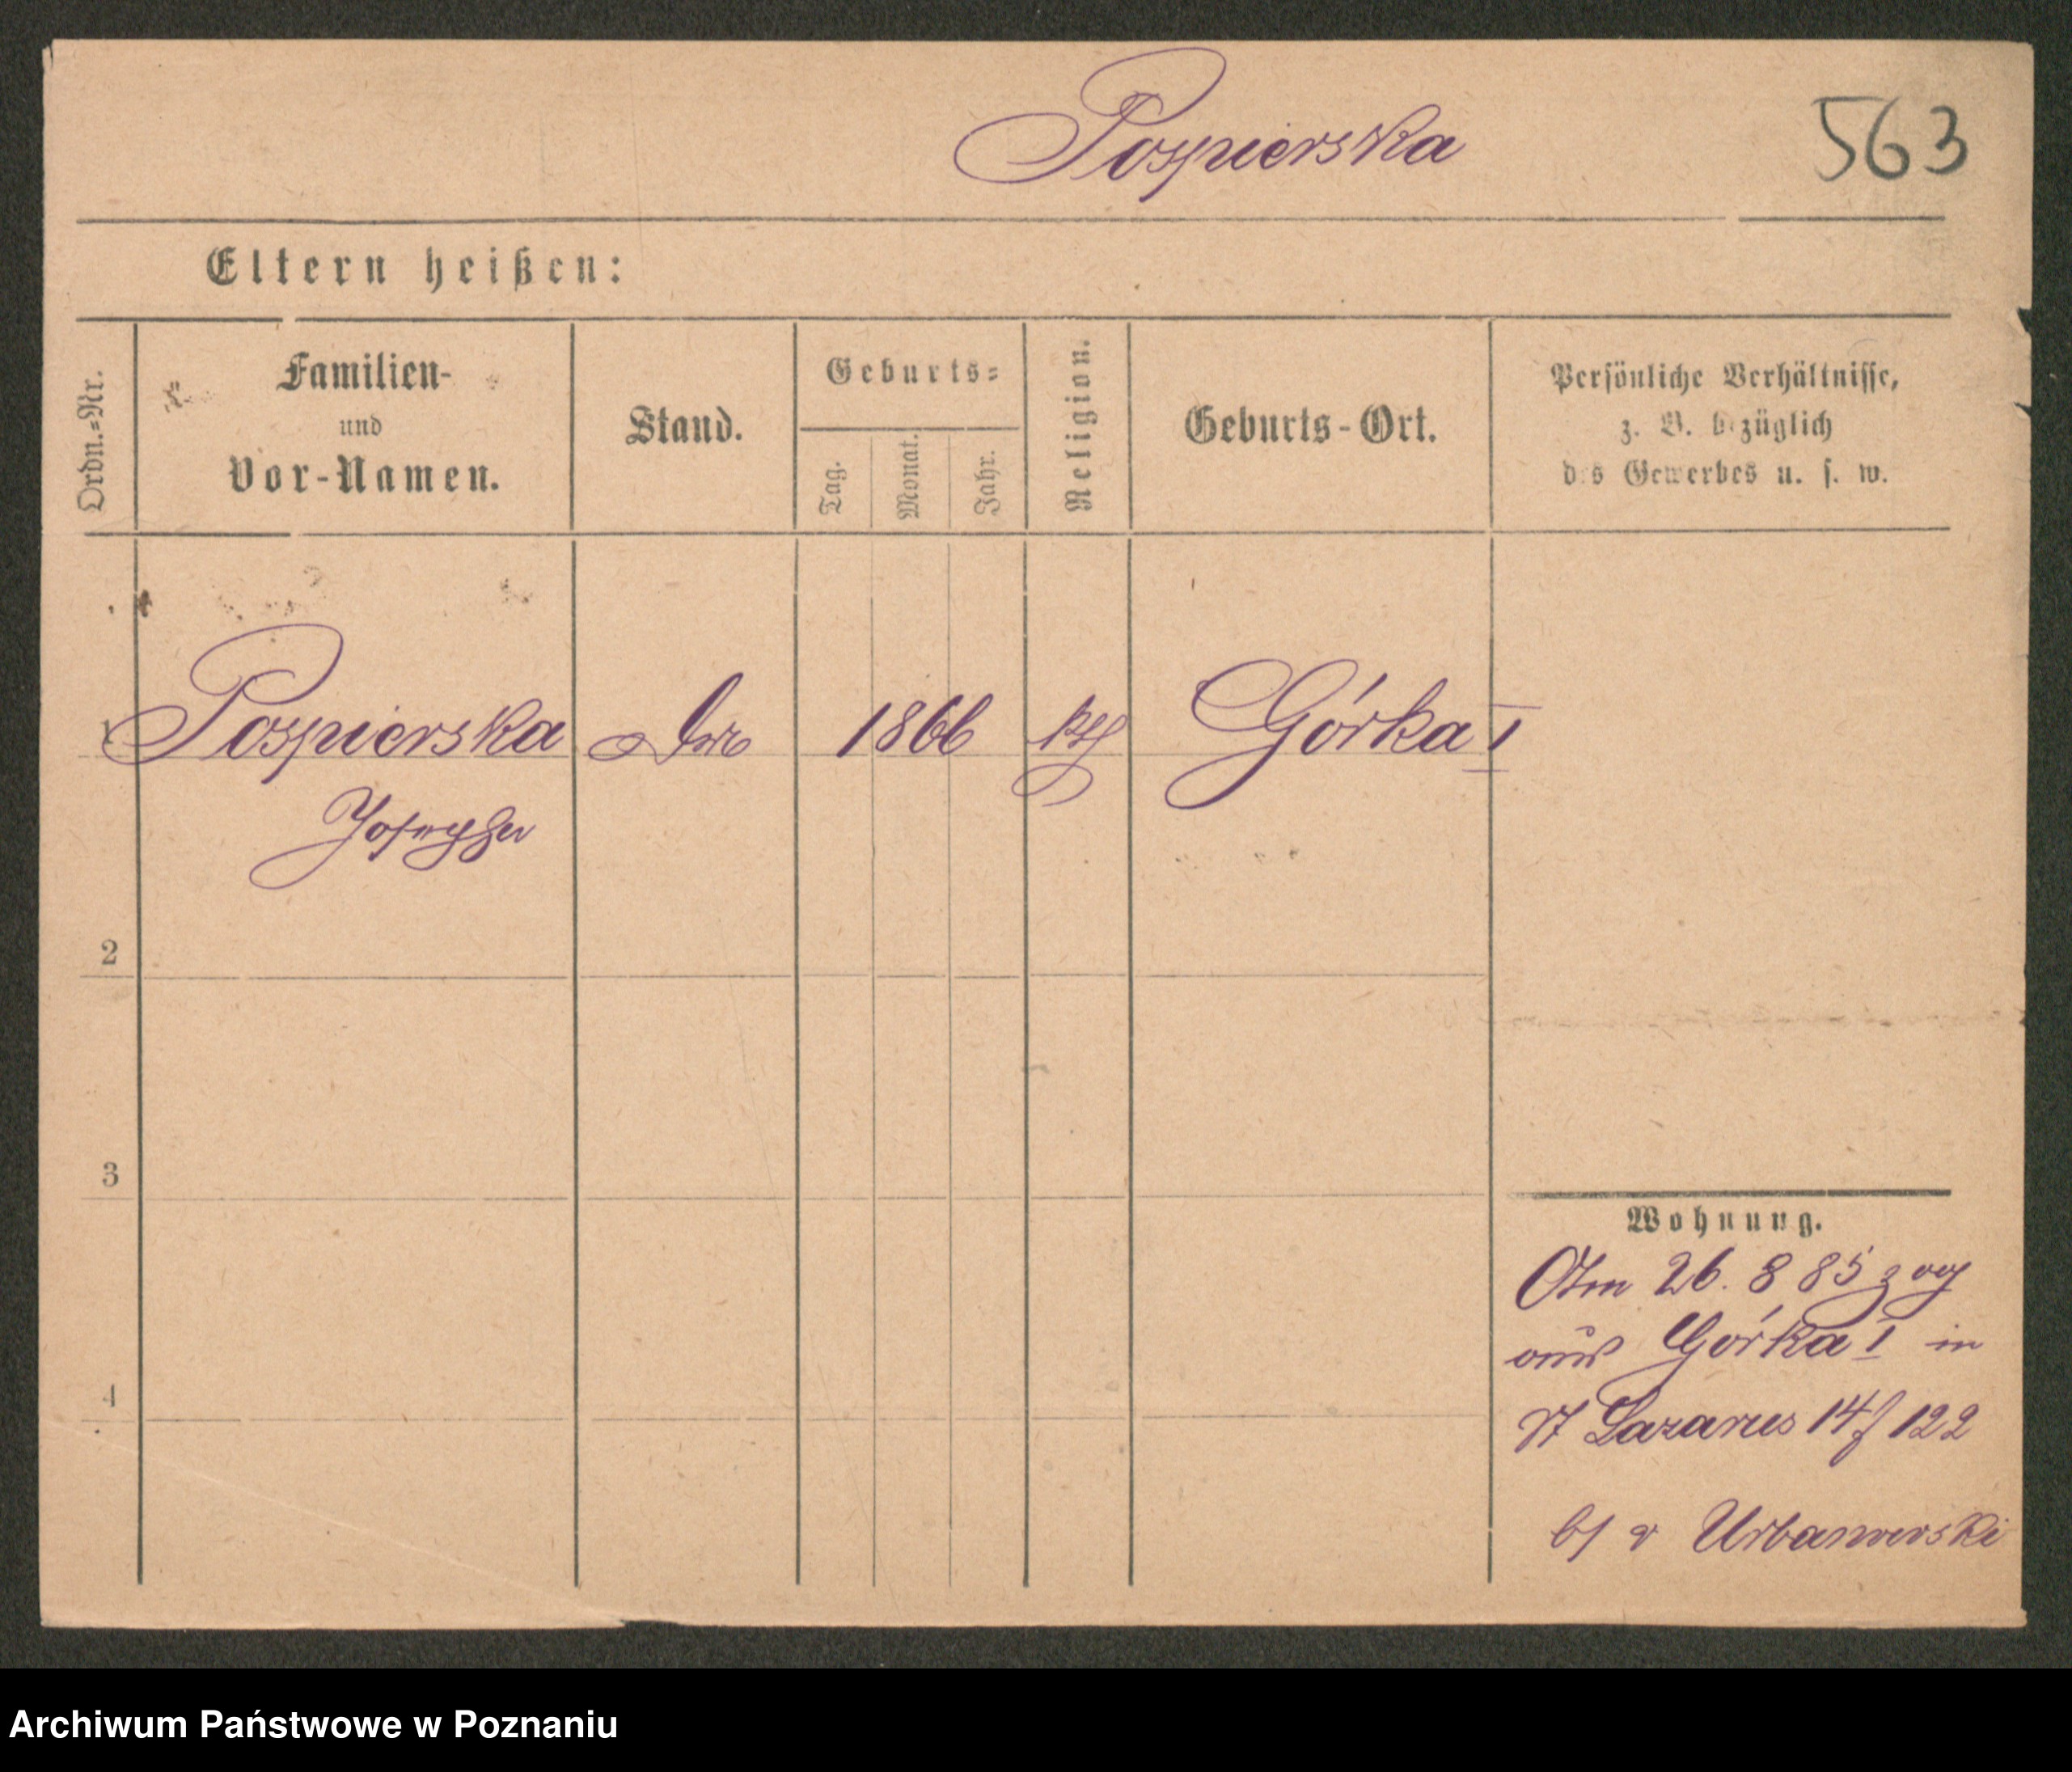 Pospierska
563
Eltern heißen:
Ordn.=Nr.
Familien-
und
Vor-Namen.
Stand.
Geburts=
Tag.
Monat.
Jahr.
Religion.
Geburts-Ort.
Persönliche Verhältnisse,
z. B. bezüglich
des Gewerbes u. s. w.
1 Pospierska 1866 kth Górka I
Josepha
2
3
4
Wohnung.
Am 26. 8 85 zog
aus Górka I in
St Lazarus 14f 122
b/ v Urbanowski
Archiwum Państwowe w Poznaniu